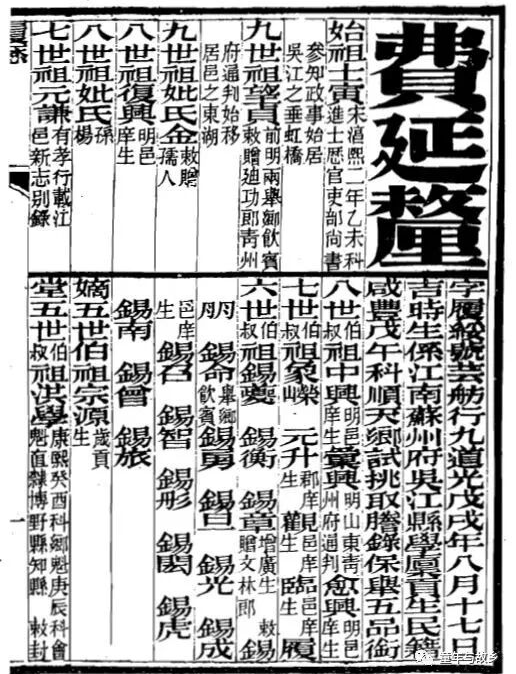 費延釐
字履綏號芸舫行九道光戊戌年八月十七日
吉時生係江南蘇州府吳江縣學廩貢生民籍
咸豐戊午科順天鄉試挑取謄錄保舉五品銜
始祖士寅宋淳熙二年乙未科
進士歷官吏部尚書
參知政事始居
吳江之垂虹橋
九世祖望貞前明兩舉鄉飲賓
敕贈廸功郎青州
府通判始移
居邑之東湖
九世祖妣氏金敕贈
孺人
八世祖復興明邑
庠生
八世祖妣氏孫
楊
七世祖元謙有孝行載江
邑新志別錄
八世伯
叔祖中興明邑
庠生彙興明山東青
州府通判愈興明邑
庠生
七世伯
叔祖象榮
元升郡庠
生觀邑庠
生臨邑庠
生履
六世伯
叔祖錫夔 錫衡 錫章增廣生 敕
贈文林郎錫
錫命舉鄉
飲賓錫勇 錫旦 錫光 錫成
邑庠
生錫召 錫智 錫形 錫閎 錫虎
錫南 錫會 錫旅
嫡五世伯祖宗源歲貢
生
堂五世伯
叔祖洪學康熙癸酉科鄉魁庚辰科會
魁直隸博野縣知縣 敕封
一
童年与故乡